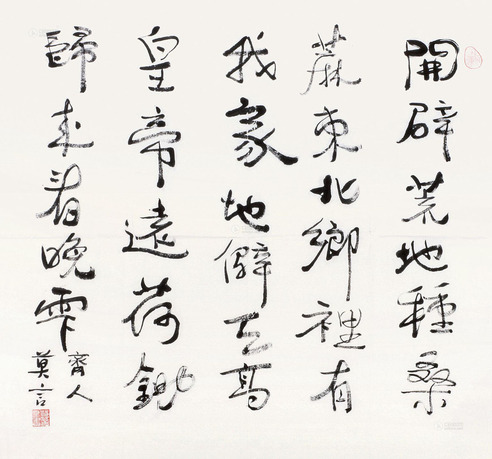 開辟荒地種桑
蔴東北鄉裡有
我家地僻天高
皇帝遠荷鋤
歸來看晚霞
齊人
莫言